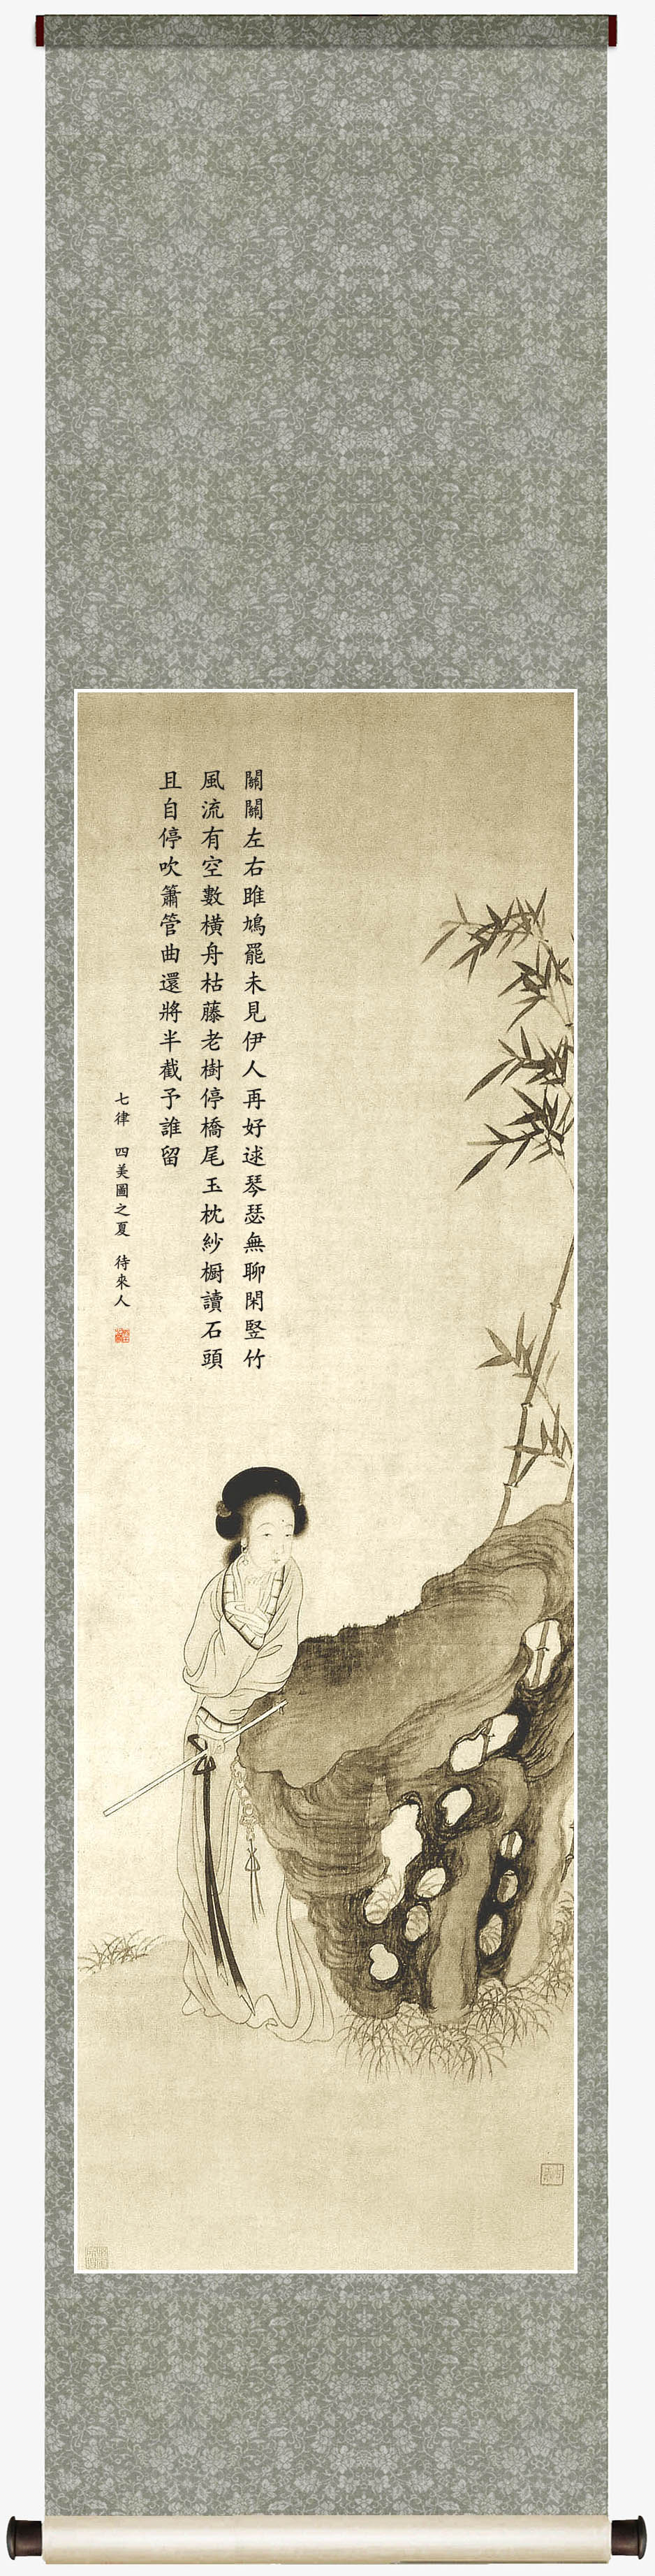 關關左右雎鳩罷未見伊人再好逑琴瑟無聊閑竪竹
風流有空數橫舟枯藤老樹停橋尾玉枕紗橱讀石頭
且自停吹簫管曲還將半截予誰留
七律 四美圖之夏 待來人